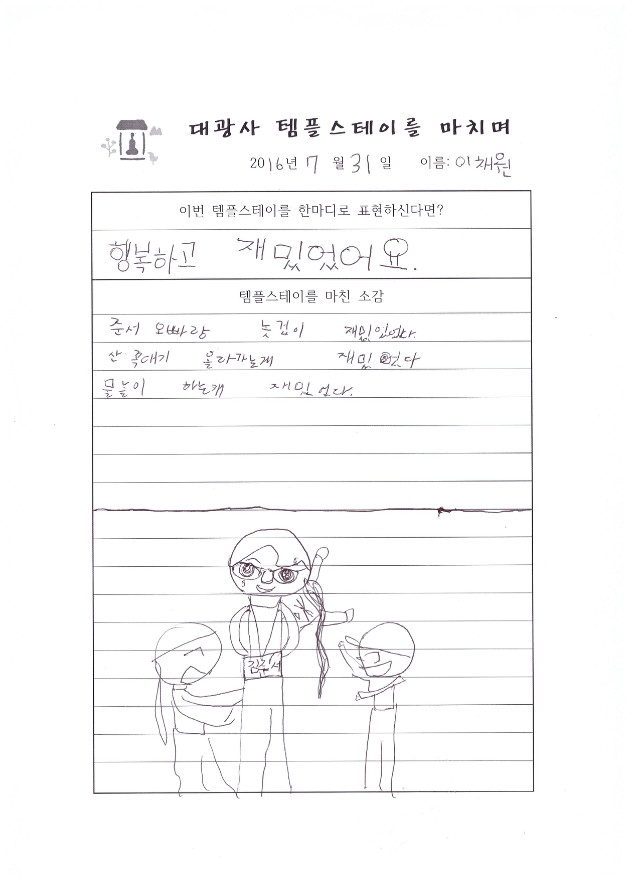 대광사 템플스테이를 마치며
2016년 7 월 31 일 이름: 이채원
이번 템플스테이를 한마디로 표현하신다면?
행복하고 재밌었어요.
템플스테이를 마친 소감
준서 오빠랑 놋겁이 재밌있었다.
산 꼭대기 올라가는게 재밌 었다
물놀이 하는개 재밌 었다.
김준서